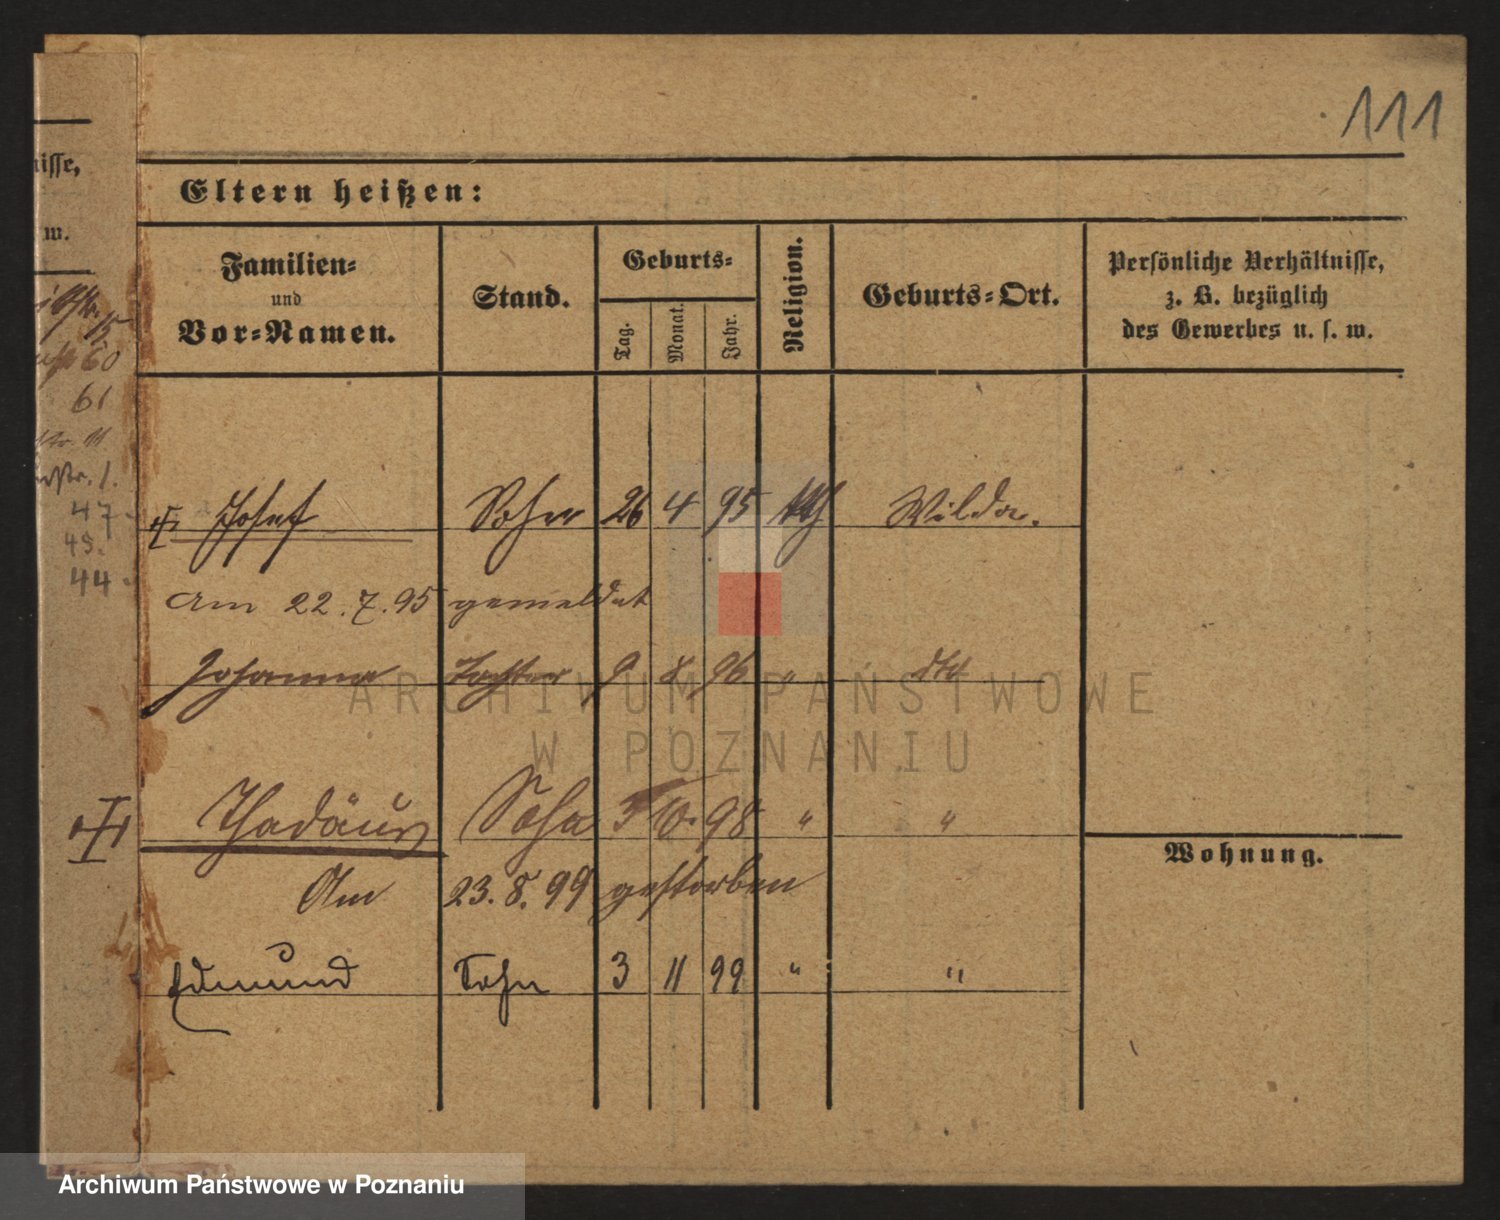 111
nisse,
w.
Eltern heißen:
Familien=
und
Vor=Namen.
Stand.
Geburts=
Tag.
Monat.
Jahr.
Religion.
Geburts=Ort.
Persönliche Verhältnisse,
z. B. bezüglich
des Gewerbes u. s. w.
15
60
61
str. 11
str. 1.
47
43.
44
Josef Sohn 26 4 95 kth Wilda.
Am 22.7.95 gemeldet
Johanna Tochter 9 8 96 " dto
Thadäus Sohn 3 10. 98 " "
Am 23.8.99 gestorben
Edmund Sohn 3 11 99 " "
Wohnung.
ARCHIWUM PAŃSTWOWE
W POZNANIU
Archiwum Państwowe w Poznaniu